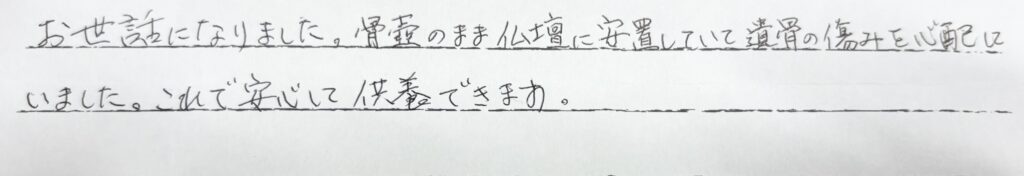 お世話になりました。骨壺のまま仏壇に安置していて遺骨の傷みを心配して
いました。これで安心して供養できます。